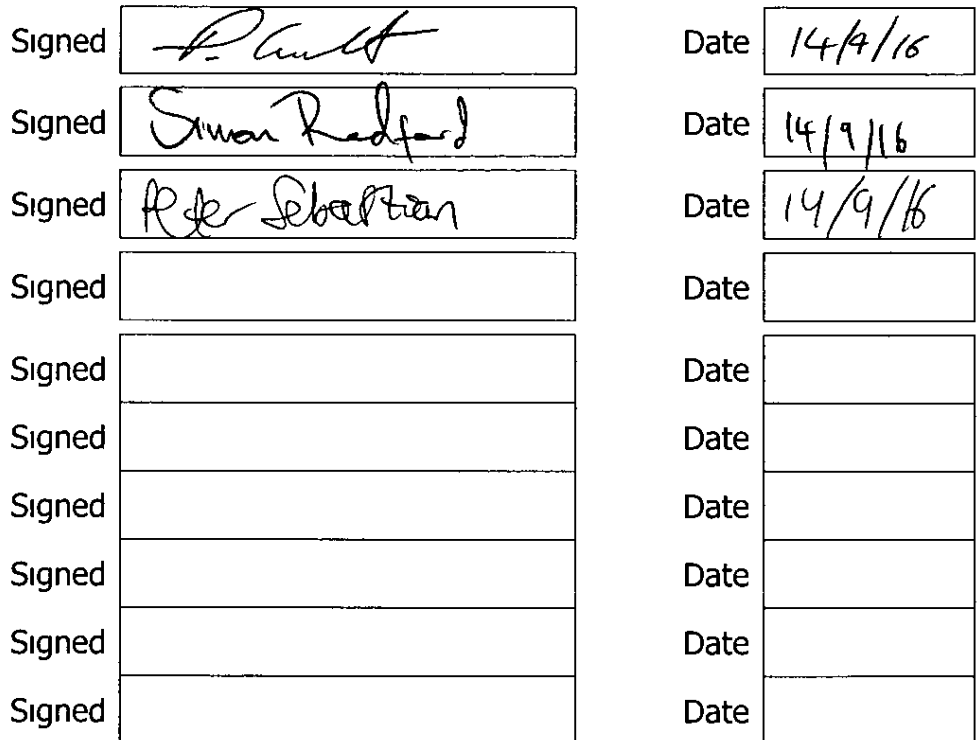 Signed P. Date 14/9/16
Signed Simon Radford Date 14/9/16
Signed Peter Sebastian Date 14/9/16
Signed Date
Signed Date
Signed Date
Signed Date
Signed Date
Signed Date
Signed Date